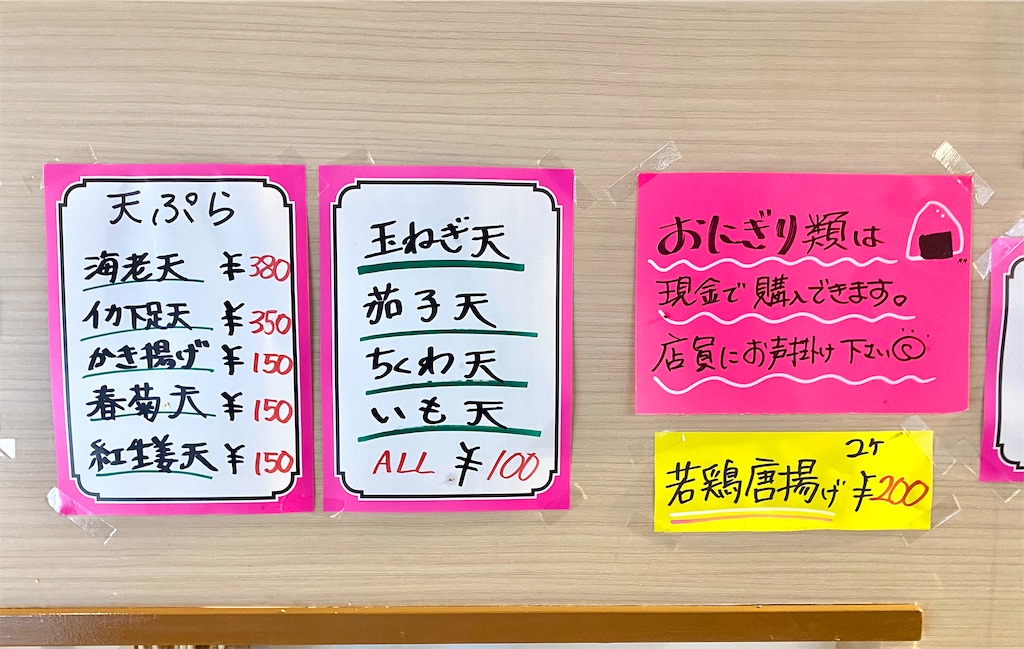 天ぷら
海老天 ¥380
イカ下足天 ¥350
かき揚げ ¥150
春菊天 ¥150
紅生姜天 ¥150
玉ねぎ天
茄子天
ちくわ天
いも天
ALL ¥100
おにぎり類は
現金で購入できます。
店員にお声掛け下さい
コケ
若鶏唐揚げ ¥200